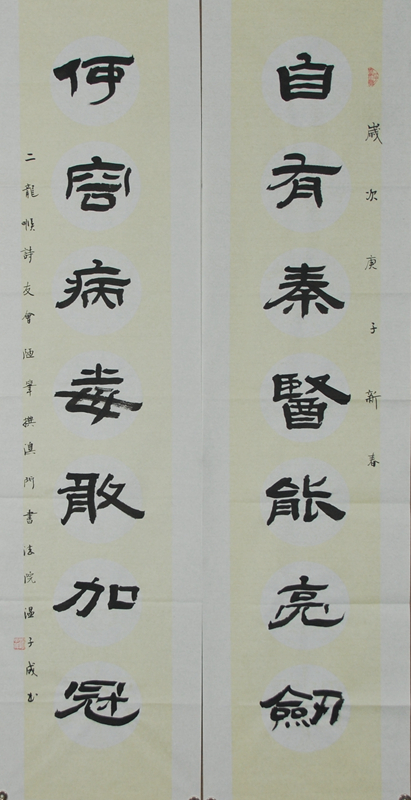 歲次庚子新春
自有秦醫能亮劒
何容病毒敢加冠
二龍喉詩友會撰澳門書法院溫子成書